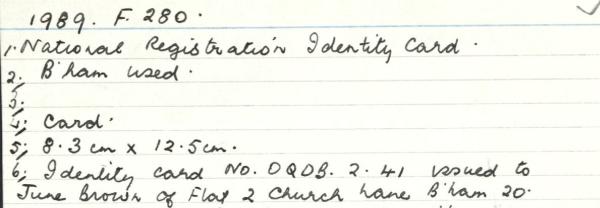 1989. F. 280.
1. National Registration Identity Card.
2. B'ham used.
3.
4. Card.
5. 8.3 cm x 12.5 cm.
6. Identity card No. DQDB. 2. 41 issued to
June Brown of Flat 2 Church Lane B'ham 20.